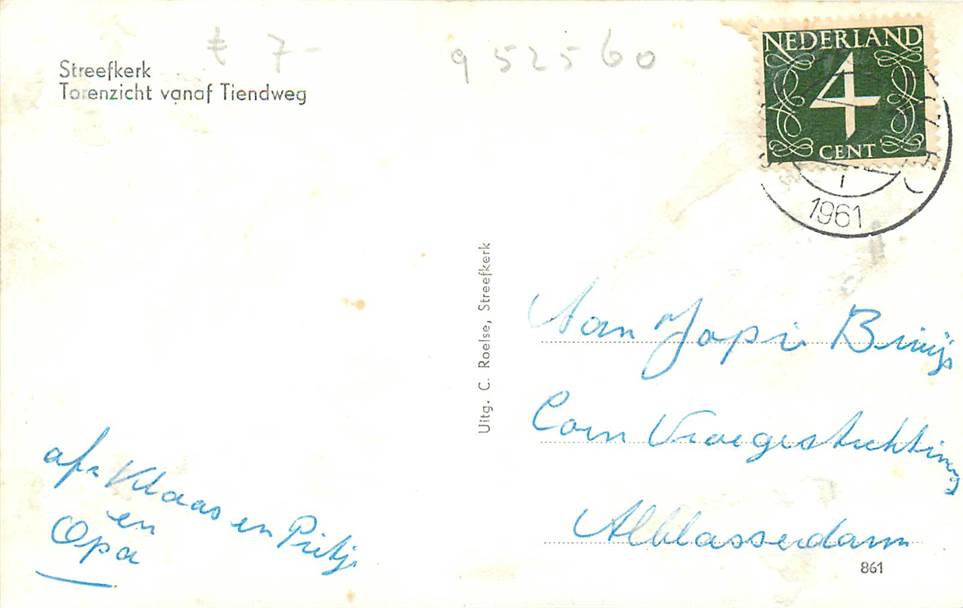 Streefkerk
Torenzicht vanaf Tiendweg
₤ 7-
952560
NEDERLAND
4
CENT
1961
Uitg. C. Roelse, Streefkerk
Aan Japi
Corn Vroegestichting
Alblasserdam
861
afz Klaas en Pietje
en
Opa